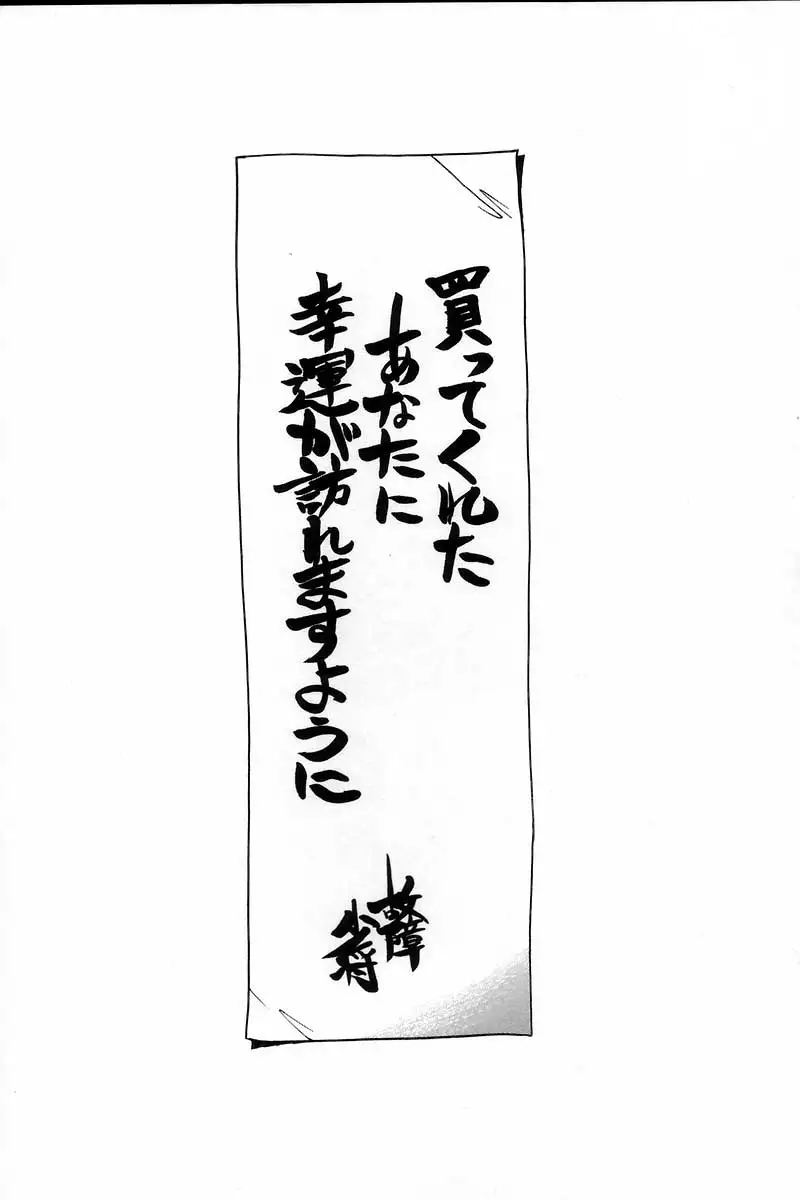 買ってくれた
あなたに
幸運が訪れますように
故障
少将